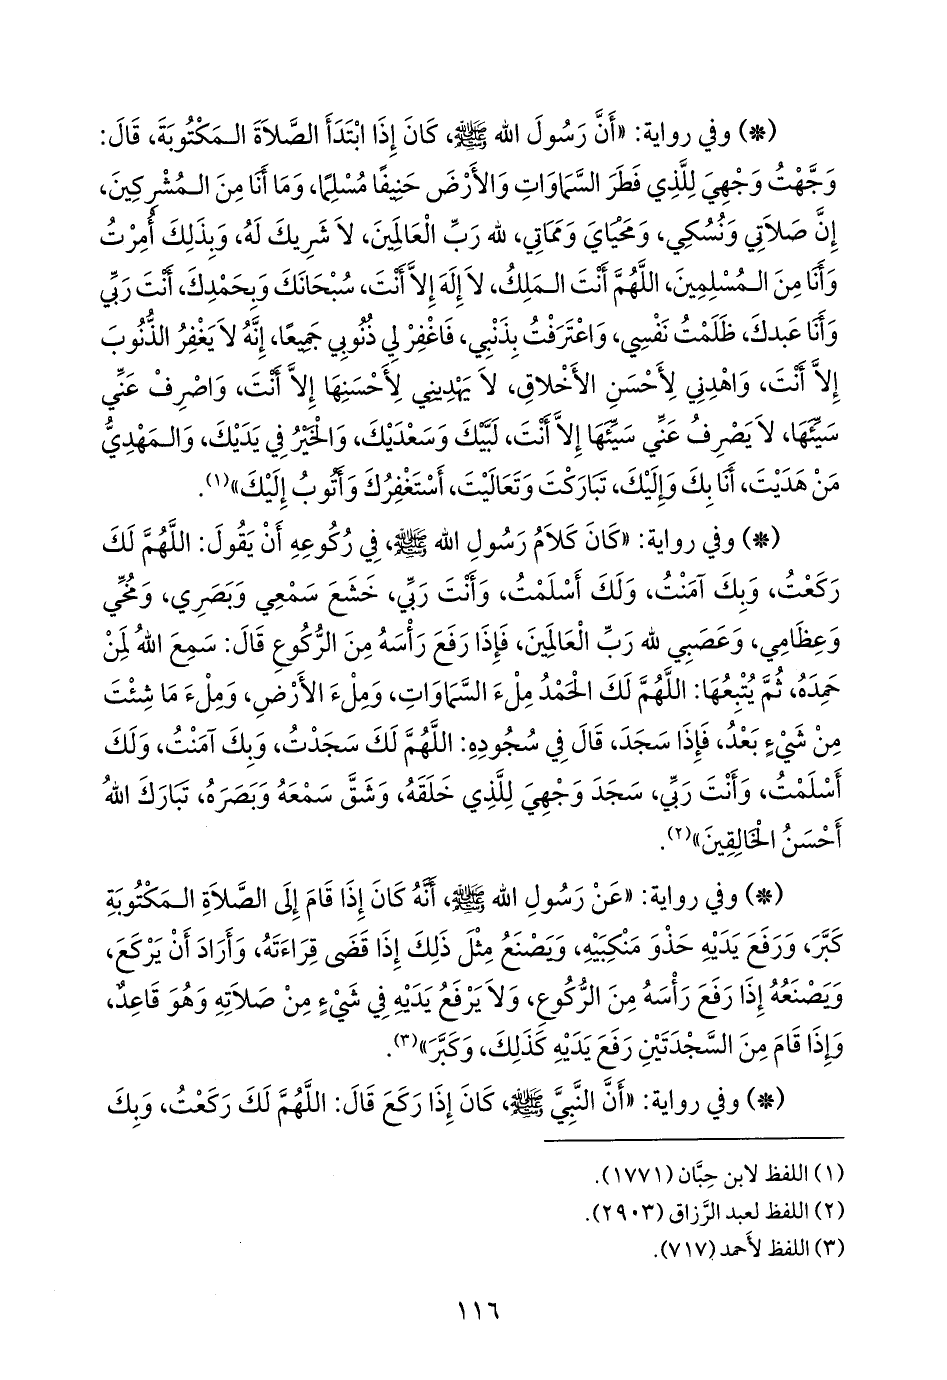 (*) وفي رواية: «أَنَّ رَسُولَ الله ﷺ، كَانَ إِذَا ابْتَدَأَ الصَّلاَةَ الـمَكْتُوبَةَ، قَالَ:
وَجَّهْتُ وَجْهِيَ لِلَّذِي فَطَرَ السَّمَاوَاتِ وَالأَرْضَ حَنِيفًا مُسْلِمًا، وَمَا أَنَا مِنَ الـمُشْرِكِينَ،
إِنَّ صَلاَتِي وَنُسُكِي، وَمَحْيَايَ وَمَمَاتِي، لله رَبِّ الْعَالَمِينَ، لاَ شَرِيكَ لَهُ، وَبِذَلِكَ أُمِرْتُ
وَأَنَا مِنَ الـمُسْلِمِينَ، اللَّهُمَّ أَنْتَ الـمَلِكُ، لاَ إِلَهَ إِلاَّ أَنْتَ، سُبْحَانَكَ وَبِحَمْدِكَ، أَنْتَ رَبِّي
وَأَنَا عَبدكَ، ظَلَمْتُ نَفْسِي، وَاعْتَرَفْتُ بِذَنْبِي، فَاغْفِرْ لِي ذُنُوبِي جَمِيعًا، إِنَّهُ لاَ يَغْفِرُ الذُّنُوبَ
إِلاَّ أَنْتَ، وَاهْدِنِي لِأَحْسَنِ الأَخْلاَقِ، لاَ يَهْدِينِي لِأَحْسَنِهَا إِلاَّ أَنْتَ، وَاصْرِفْ عَنِّي
سَيِّئَهَا، لاَ يَصْرِفُ عَنِّي سَيِّئَهَا إِلاَّ أَنْتَ، لَبَّيْكَ وَسَعْدَيْكَ، وَالخَيْرُ فِي يَدَيْكَ، وَالـمَهْدِيُّ
مَنْ هَدَيْتَ، أَنَا بِكَ وَإِلَيْكَ، تَبَارَكْتَ وَتَعَالَيْتَ، أَسْتَغْفِرُكَ وَأَتُوبُ إِلَيْكَ»(١).
(*) وفي رواية: «كَانَ كَلاَمُ رَسُولِ الله ﷺ، فِي رُكُوعِهِ أَنْ يَقُولَ: اللَّهُمَّ لَكَ
رَكَعْتُ، وَبِكَ آمَنْتُ، وَلَكَ أَسْلَمْتُ، وَأَنْتَ رَبِّي، خَشَعَ سَمْعِي وَبَصَرِي، وَمُخِّي
وَعِظَامِي، وَعَصَبِي لله رَبِّ الْعَالَمِينَ، فَإِذَا رَفَعَ رَأْسَهُ مِنَ الرُّكُوعِ قَالَ: سَمِعَ اللهُ لِمَنْ
حَمِدَهُ، ثُمَّ يُتْبِعُهَا: اللَّهُمَّ لَكَ الحَمْدُ مِلْءَ السَّمَاوَاتِ، وَمِلْءَ الأَرْضِ، وَمِلْءَ مَا شِئْتَ
مِنْ شَيْءٍ بَعْدُ، فَإِذَا سَجَدَ، قَالَ فِي سُجُودِهِ: اللَّهُمَّ لَكَ سَجَدْتُ، وَبِكَ آمَنْتُ، وَلَكَ
أَسْلَمْتُ، وَأَنْتَ رَبِّي، سَجَدَ وَجْهِيَ لِلَّذِي خَلَقَهُ، وَشَقَّ سَمْعَهُ وَبَصَرَهُ، تَبَارَكَ اللهُ
أَحْسَنُ الخَالِقِينَ»(٢).
(*) وفي رواية: «عَنْ رَسُولِ الله ﷺ، أَنَّهُ كَانَ إِذَا قَامَ إِلَى الصَّلاَةِ الـمَكْتُوبَةِ
كَبَّرَ، وَرَفَعَ يَدَيْهِ حَذْوَ مَنْكِبَيْهِ، وَيَصْنَعُ مِثْلَ ذَلِكَ إِذَا قَضَى قِرَاءَتَهُ، وَأَرَادَ أَنْ يَرْكَعَ،
وَيَصْنَعُهُ إِذَا رَفَعَ رَأْسَهُ مِنَ الرُّكُوعِ، وَلاَ يَرْفَعُ يَدَيْهِ فِي شَيْءٍ مِنْ صَلاَتِهِ وَهُوَ قَاعِدٌ،
وَإِذَا قَامَ مِنَ السَّجْدَتَيْنِ رَفَعَ يَدَيْهِ كَذَلِكَ، وَكَبَّرَ»(٣).
(*) وفي رواية: «أَنَّ النَّبِيَّ ﷺ، كَانَ إِذَا رَكَعَ قَالَ: اللَّهُمَّ لَكَ رَكَعْتُ، وَبِكَ
(١) اللفظ لابن حِبَّان (١٧٧١).
(٢) اللفظ لعبد الرَّزاق (٢٩٠٣).
(٣) اللفظ لأحمد (٧١٧).
١١٦